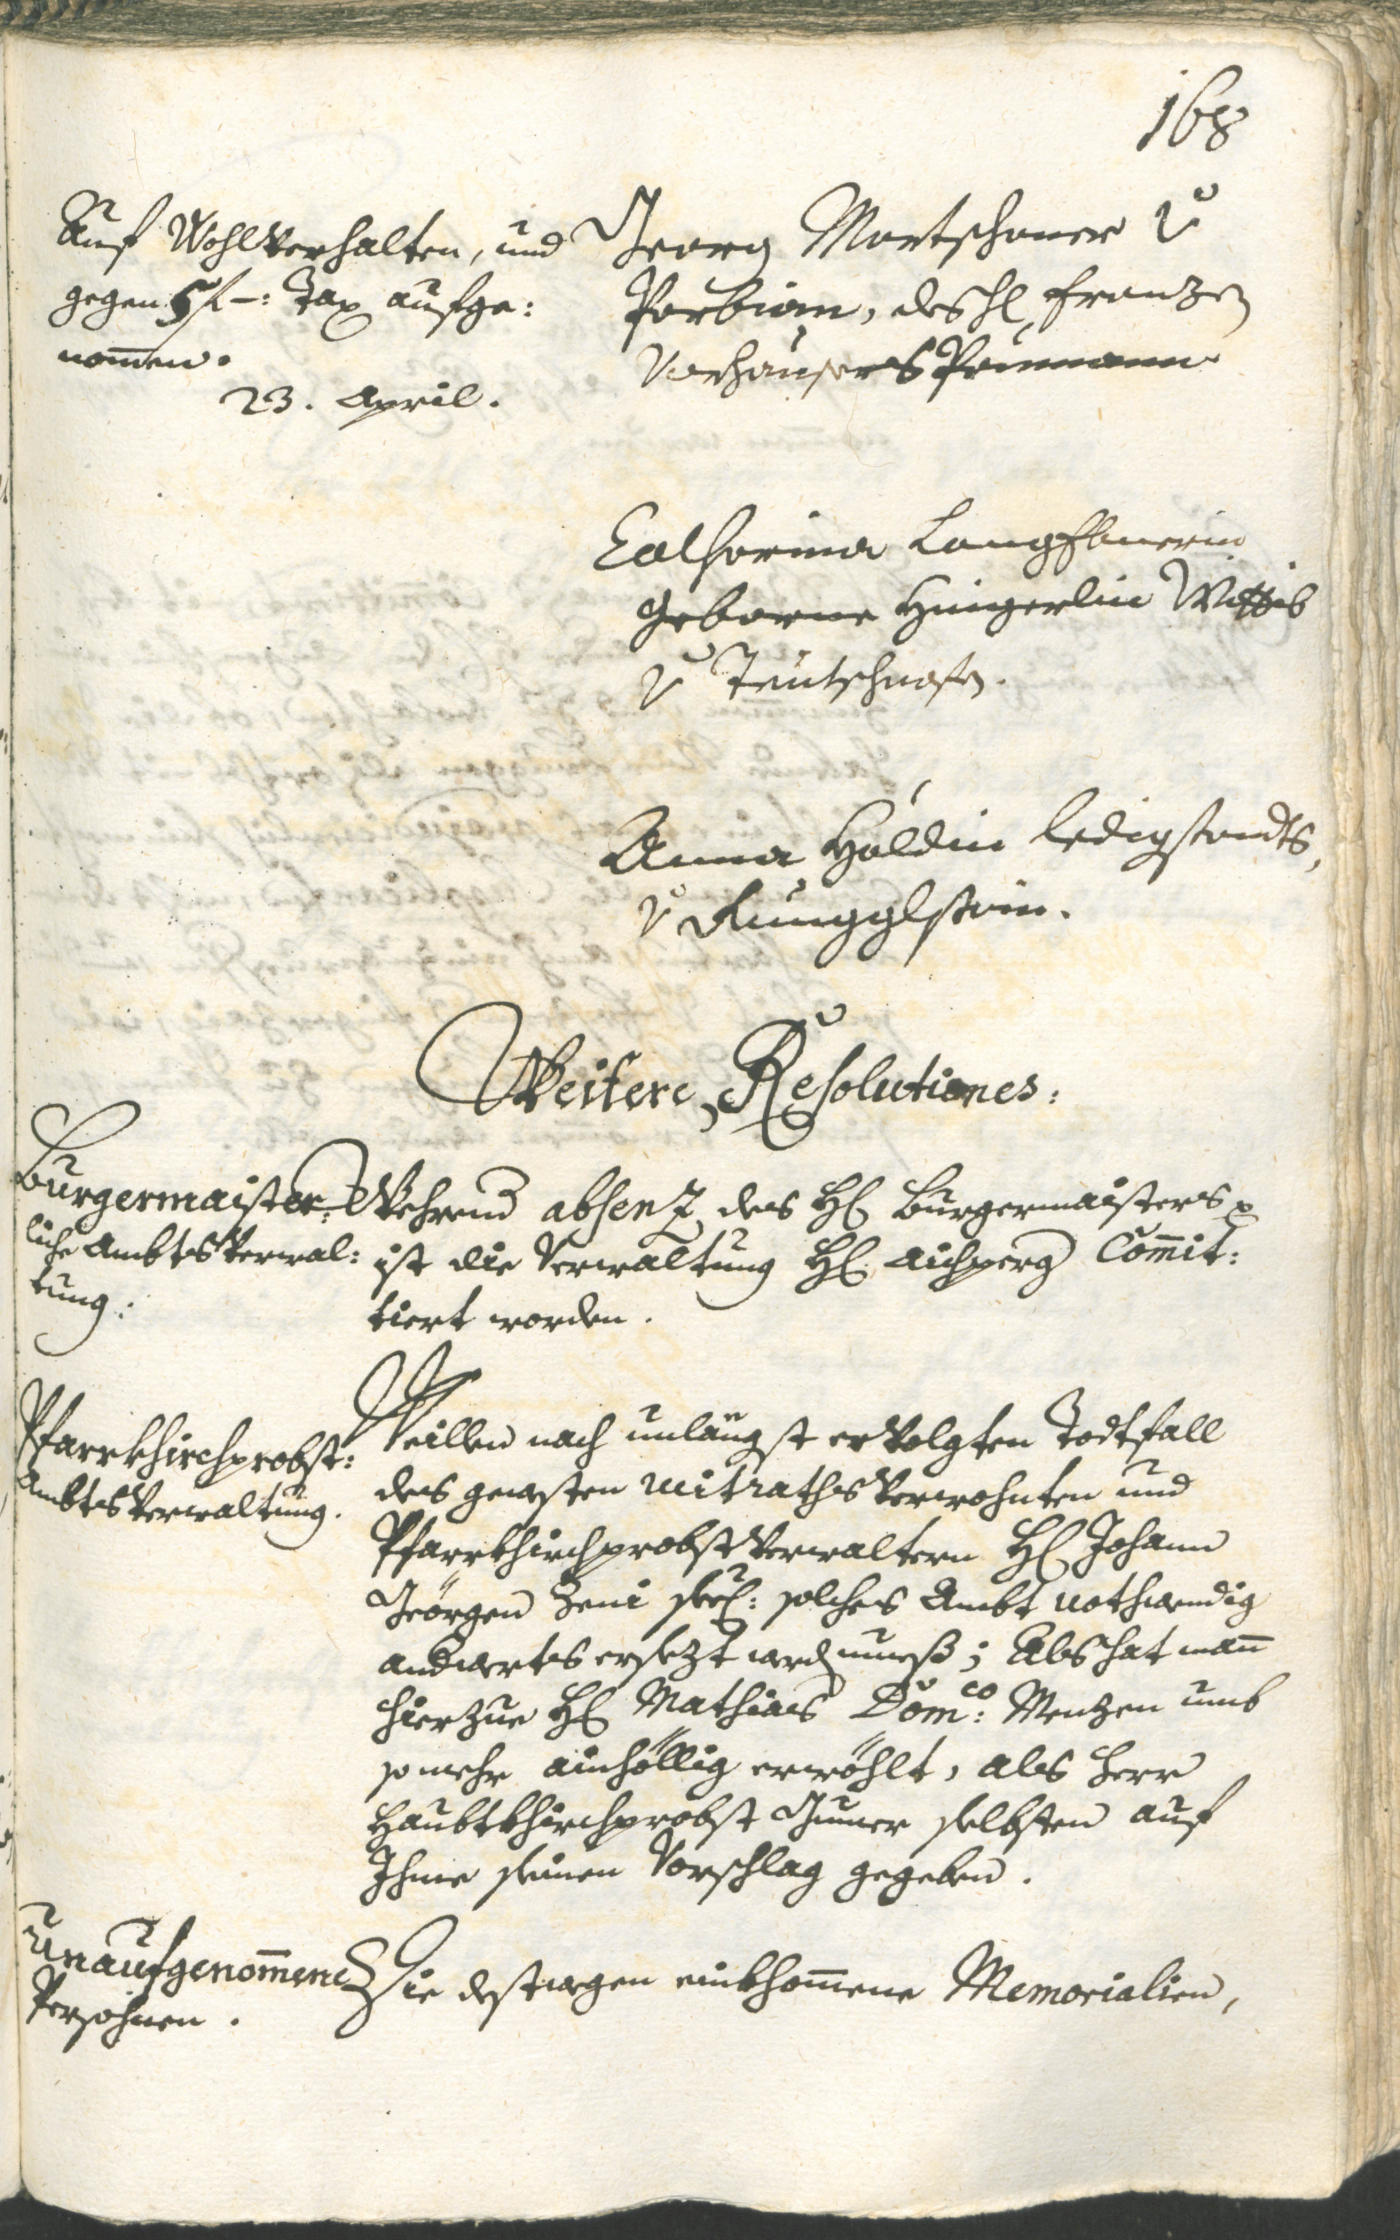 168
Auf Wohlverhalten, und
gegen 5 f –: Tax aufge:
nom̄en.
23. April.
Georg Martschoner v
Parbian, des H Franzen
Vorhausers Paumann
Catharina Langebnerin
geborne Hungerlin Wittib
v Teutschnofen.
Anna Häldin ledigstandts,
v Runggelstein.
Weitere Resolutiones:
Burgermaister:
liche Ambts Verwal:
tung:
Wehrend absenz des H Burgermaisters
ist die Verwaltung H Aichperg Com̄it:
tiert worden.
Pfarrkhirchprobst:
Ambts Verwaltung.
Weillen nach unlängst ervolgten Todtfall
des gewesten mitraths Verwohnten und
Pfarrkhirchprobst Verwaltern H Johann
Geörgen Zeni seel: solches Ambt nothwendig
anderwerts ersezt werden mueß; Als hat man̄
hierzue H Mathias Dom:co Menzen umb
so mehr ainhöllig erwöhlt, als Herr
Haubtkhirchprobst Gumer selbsten auf
Ihme seinen Vorschlag gegeben.
Unaufgenom̄ene
Persohnen.
Die destwegen einkhom̄ene Memorialien,